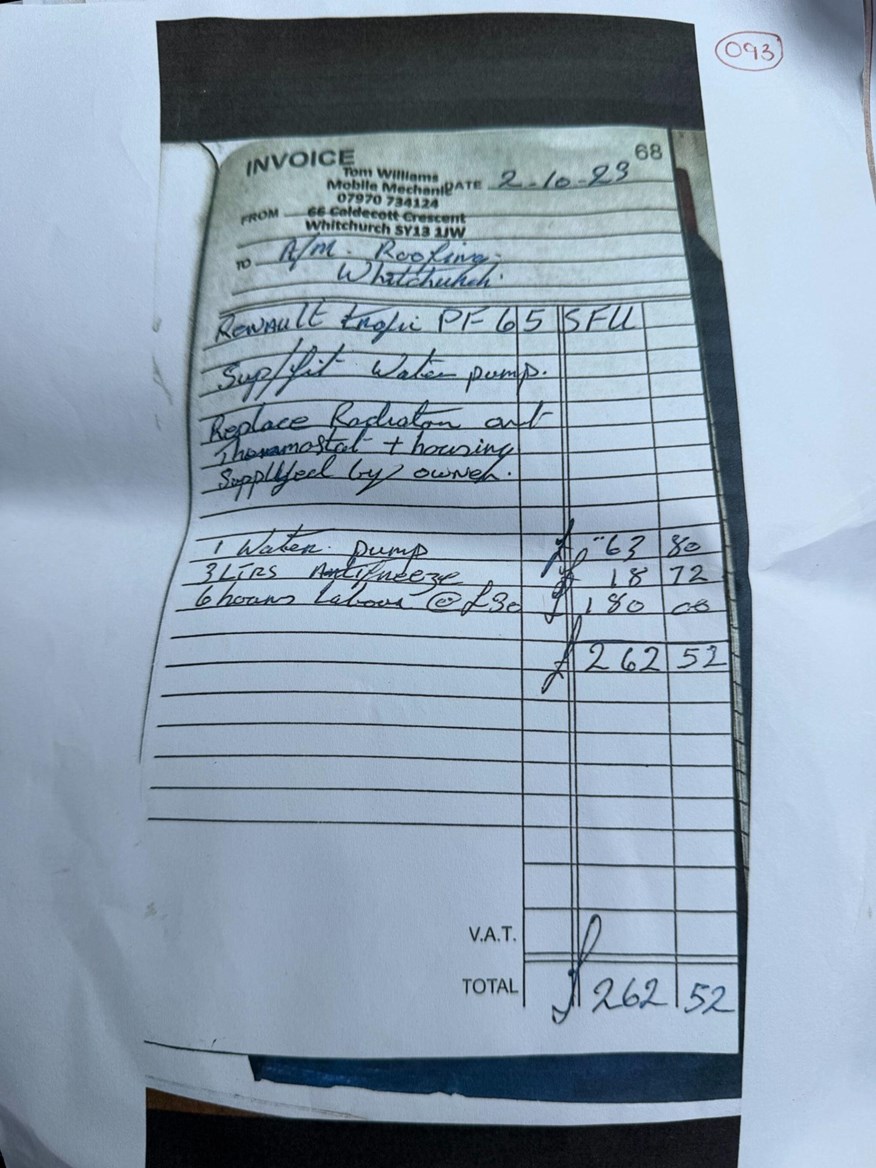 093
INVOICE 68
Tom Williams
Mobile Mechanic DATE 2-10-23
07970 734124
FROM 66 Caldecott Crescent
Whitchurch SY13 1JW
TO R/M. Roofing.
Whitchurch.
Renault trafic PF65 SFU
Sup/fit Water pump.
Replace Radiator and
Thoramostat + housing
Supplyed by owner.
1 Water pump £ 63 80
3 LTRS Antifreeze £ 18 72
6 hours Labour @ £30 £ 180 00
£ 262 52
V.A.T.
TOTAL £ 262 52